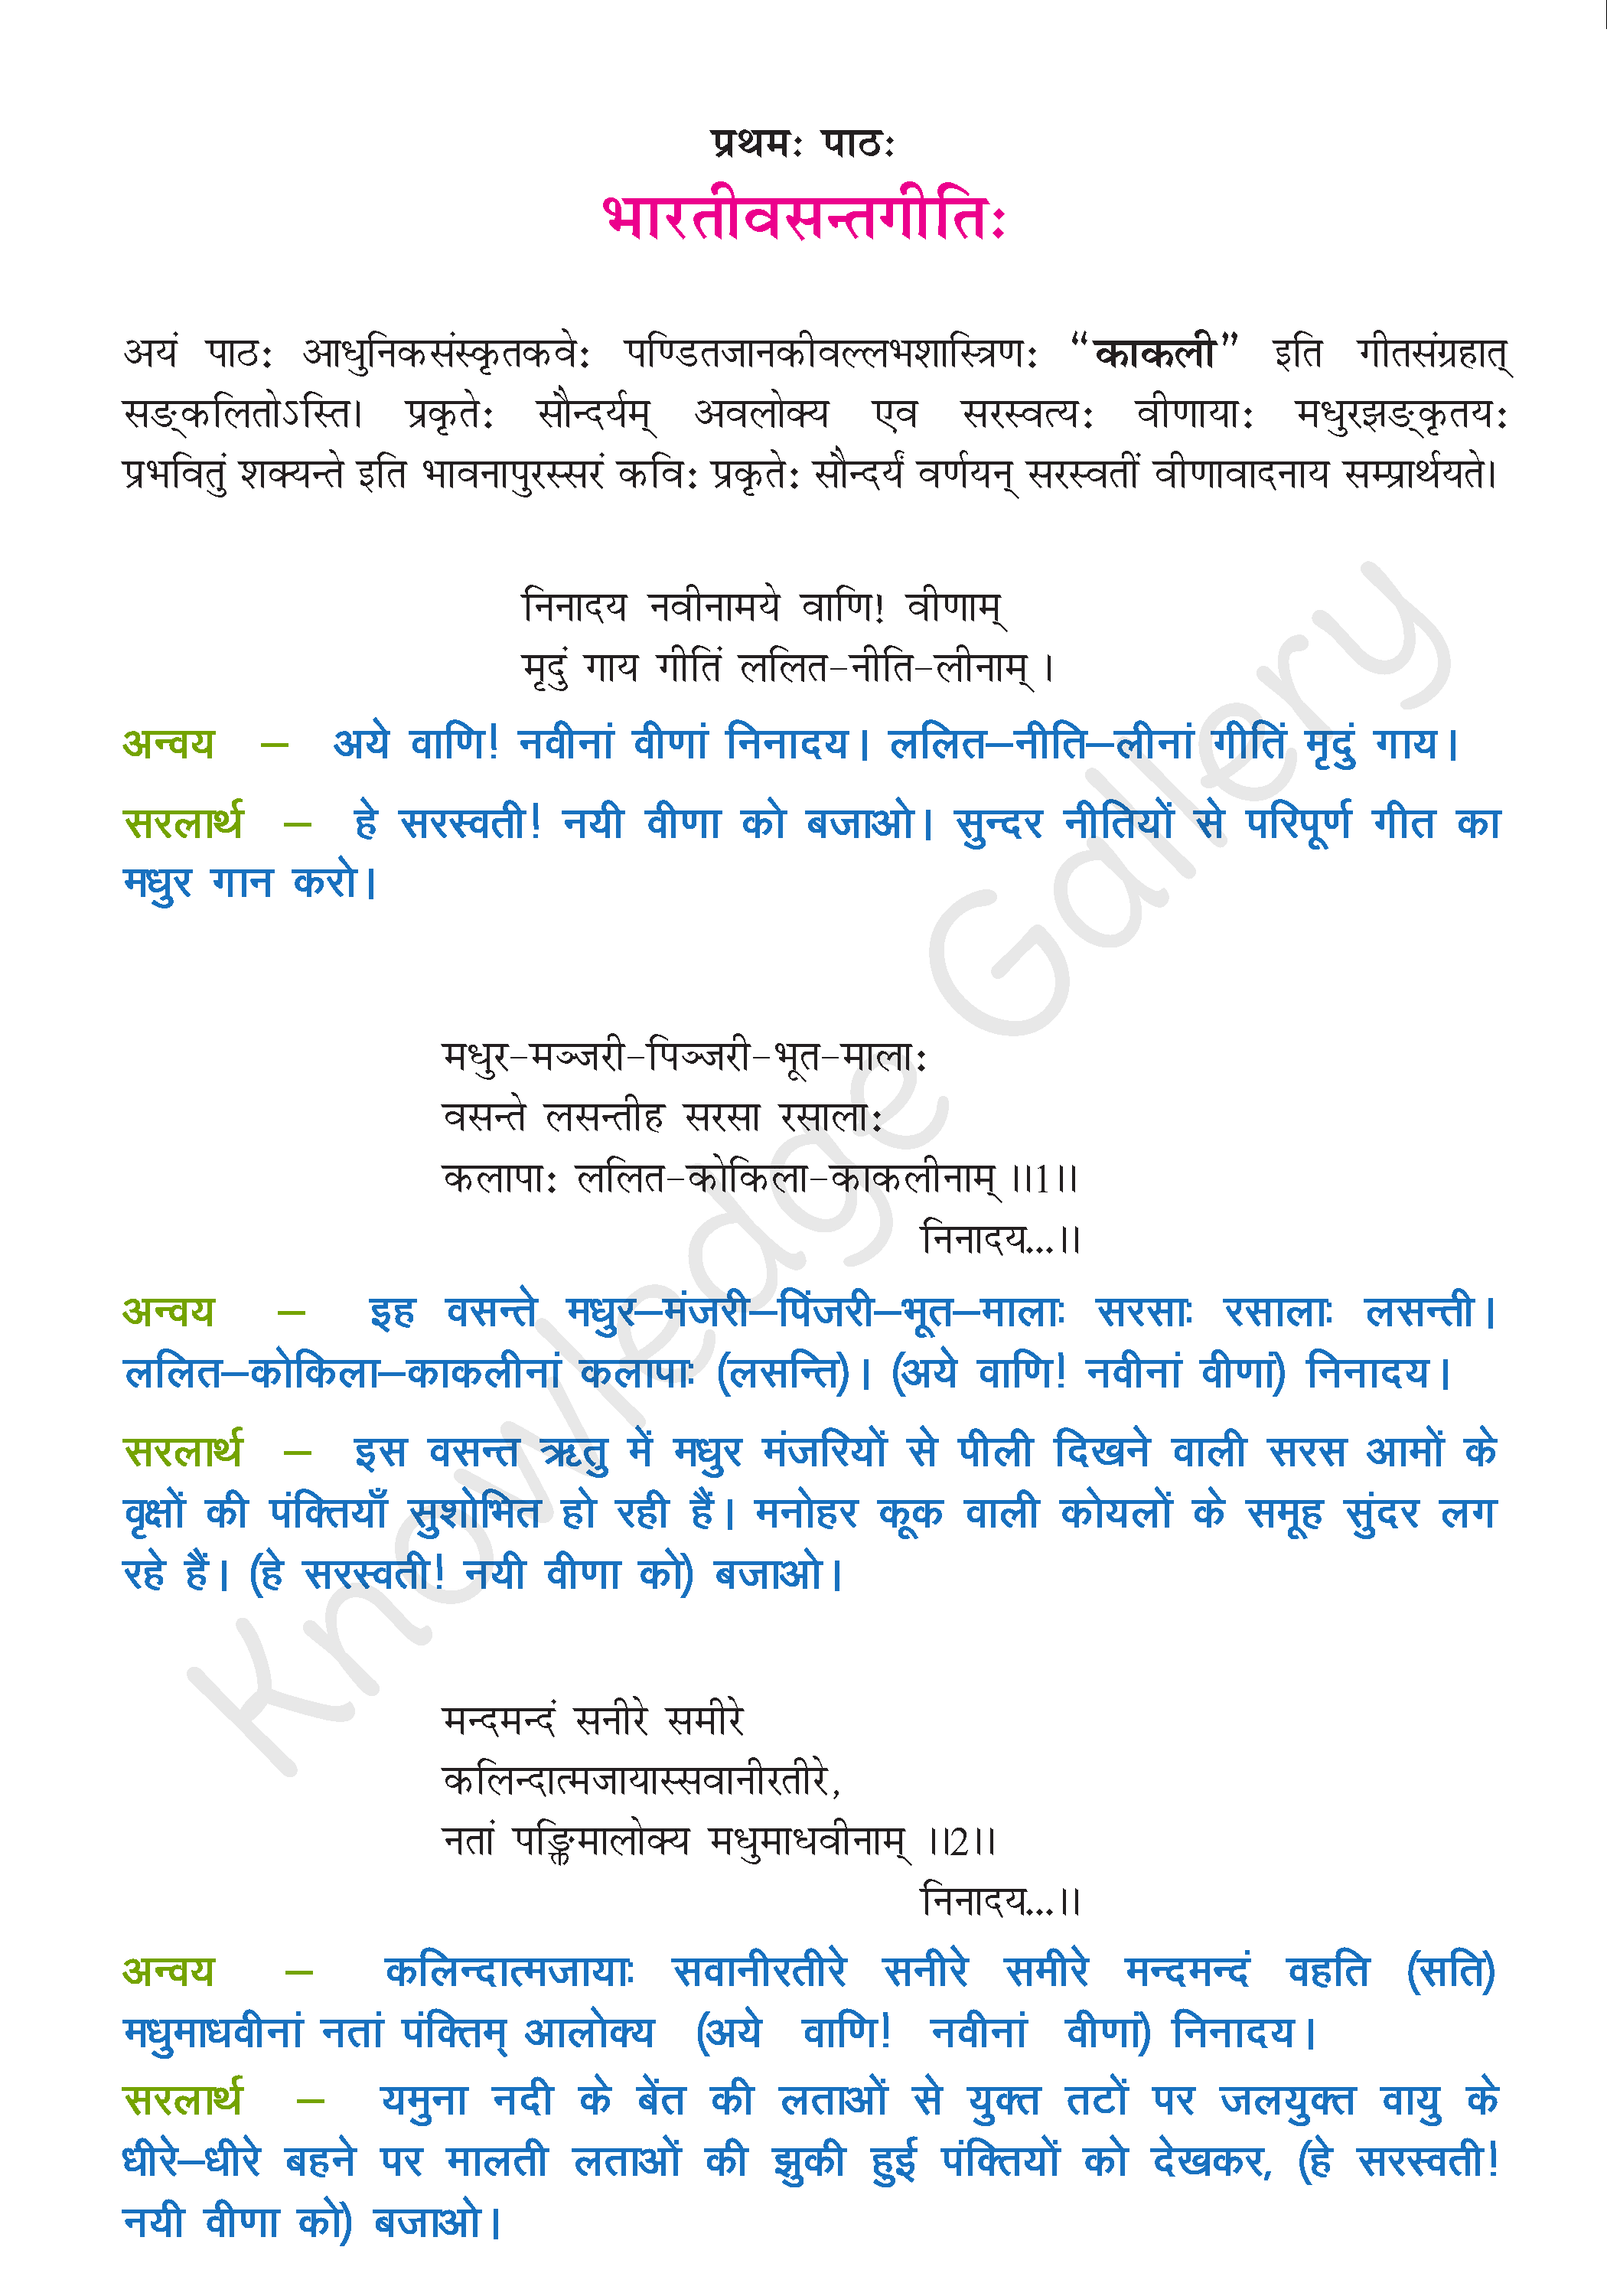 प्रथमः पाठः
भारतीवसन्तगीतिः
अयं पाठः आधुनिकसंस्कृतकवेः पण्डितजानकीवल्लभशास्त्रिणः “काकली” इति गीतसंग्रहात्
सङ्कलितोऽस्ति। प्रकृतेः सौन्दर्यम् अवलोक्य एव सरस्वत्यः वीणायाः मधुरझङ्कृतयः
प्रभवितुं शक्यन्ते इति भावनापुरस्सरं कविः प्रकृतेः सौन्दर्यं वर्णयन् सरस्वतीं वीणावादनाय सम्प्रार्थयते।
निनादय नवीनामये वाणि! वीणाम्
मृदुं गाय गीतिं ललित-नीति-लीनाम् ।
अन्वय – अये वाणि! नवीनां वीणां निनादय। ललित–नीति–लीनां गीतिं मृदुं गाय।
सरलार्थ – हे सरस्वती! नयी वीणा को बजाओ। सुन्दर नीतियों से परिपूर्ण गीत का
मधुर गान करो।
मधुर-मञ्जरी-पिञ्जरी-भूत-मालाः
वसन्ते लसन्तीह सरसा रसालाः
कलापाः ललित-कोकिला-काकलीनाम् ।।1।।
निनादय...।।
अन्वय – इह वसन्ते मधुर–मंजरी–पिंजरी–भूत–मालाः सरसाः रसालाः लसन्ती।
ललित–कोकिला–काकलीनां कलापाः (लसन्ति)। (अये वाणि! नवीनां वीणां) निनादय।
सरलार्थ – इस वसन्त ऋतु में मधुर मंजरियों से पीली दिखने वाली सरस आमों के
वृक्षों की पंक्तियाँ सुशोभित हो रही हैं। मनोहर कूक वाली कोयलों के समूह सुंदर लग
रहे हैं। (हे सरस्वती! नयी वीणा को) बजाओ।
मन्दमन्दं सनीरे समीरे
कलिन्दात्मजायास्सवानीरतीरे,
नतां पङ्क्तिमालोक्य मधुमाधवीनाम् ।।2।।
निनादय...।।
अन्वय – कलिन्दात्मजायाः सवानीरतीरे सनीरे समीरे मन्दमन्दं वहति (सति)
मधुमाधवीनां नतां पंक्तिम् आलोक्य (अये वाणि! नवीनां वीणां) निनादय।
सरलार्थ – यमुना नदी के बेंत की लताओं से युक्त तटों पर जलयुक्त वायु के
धीरे–धीरे बहने पर मालती लताओं की झुकी हुई पंक्तियों को देखकर, (हे सरस्वती!
नयी वीणा को) बजाओ।
Knowledge Gallery